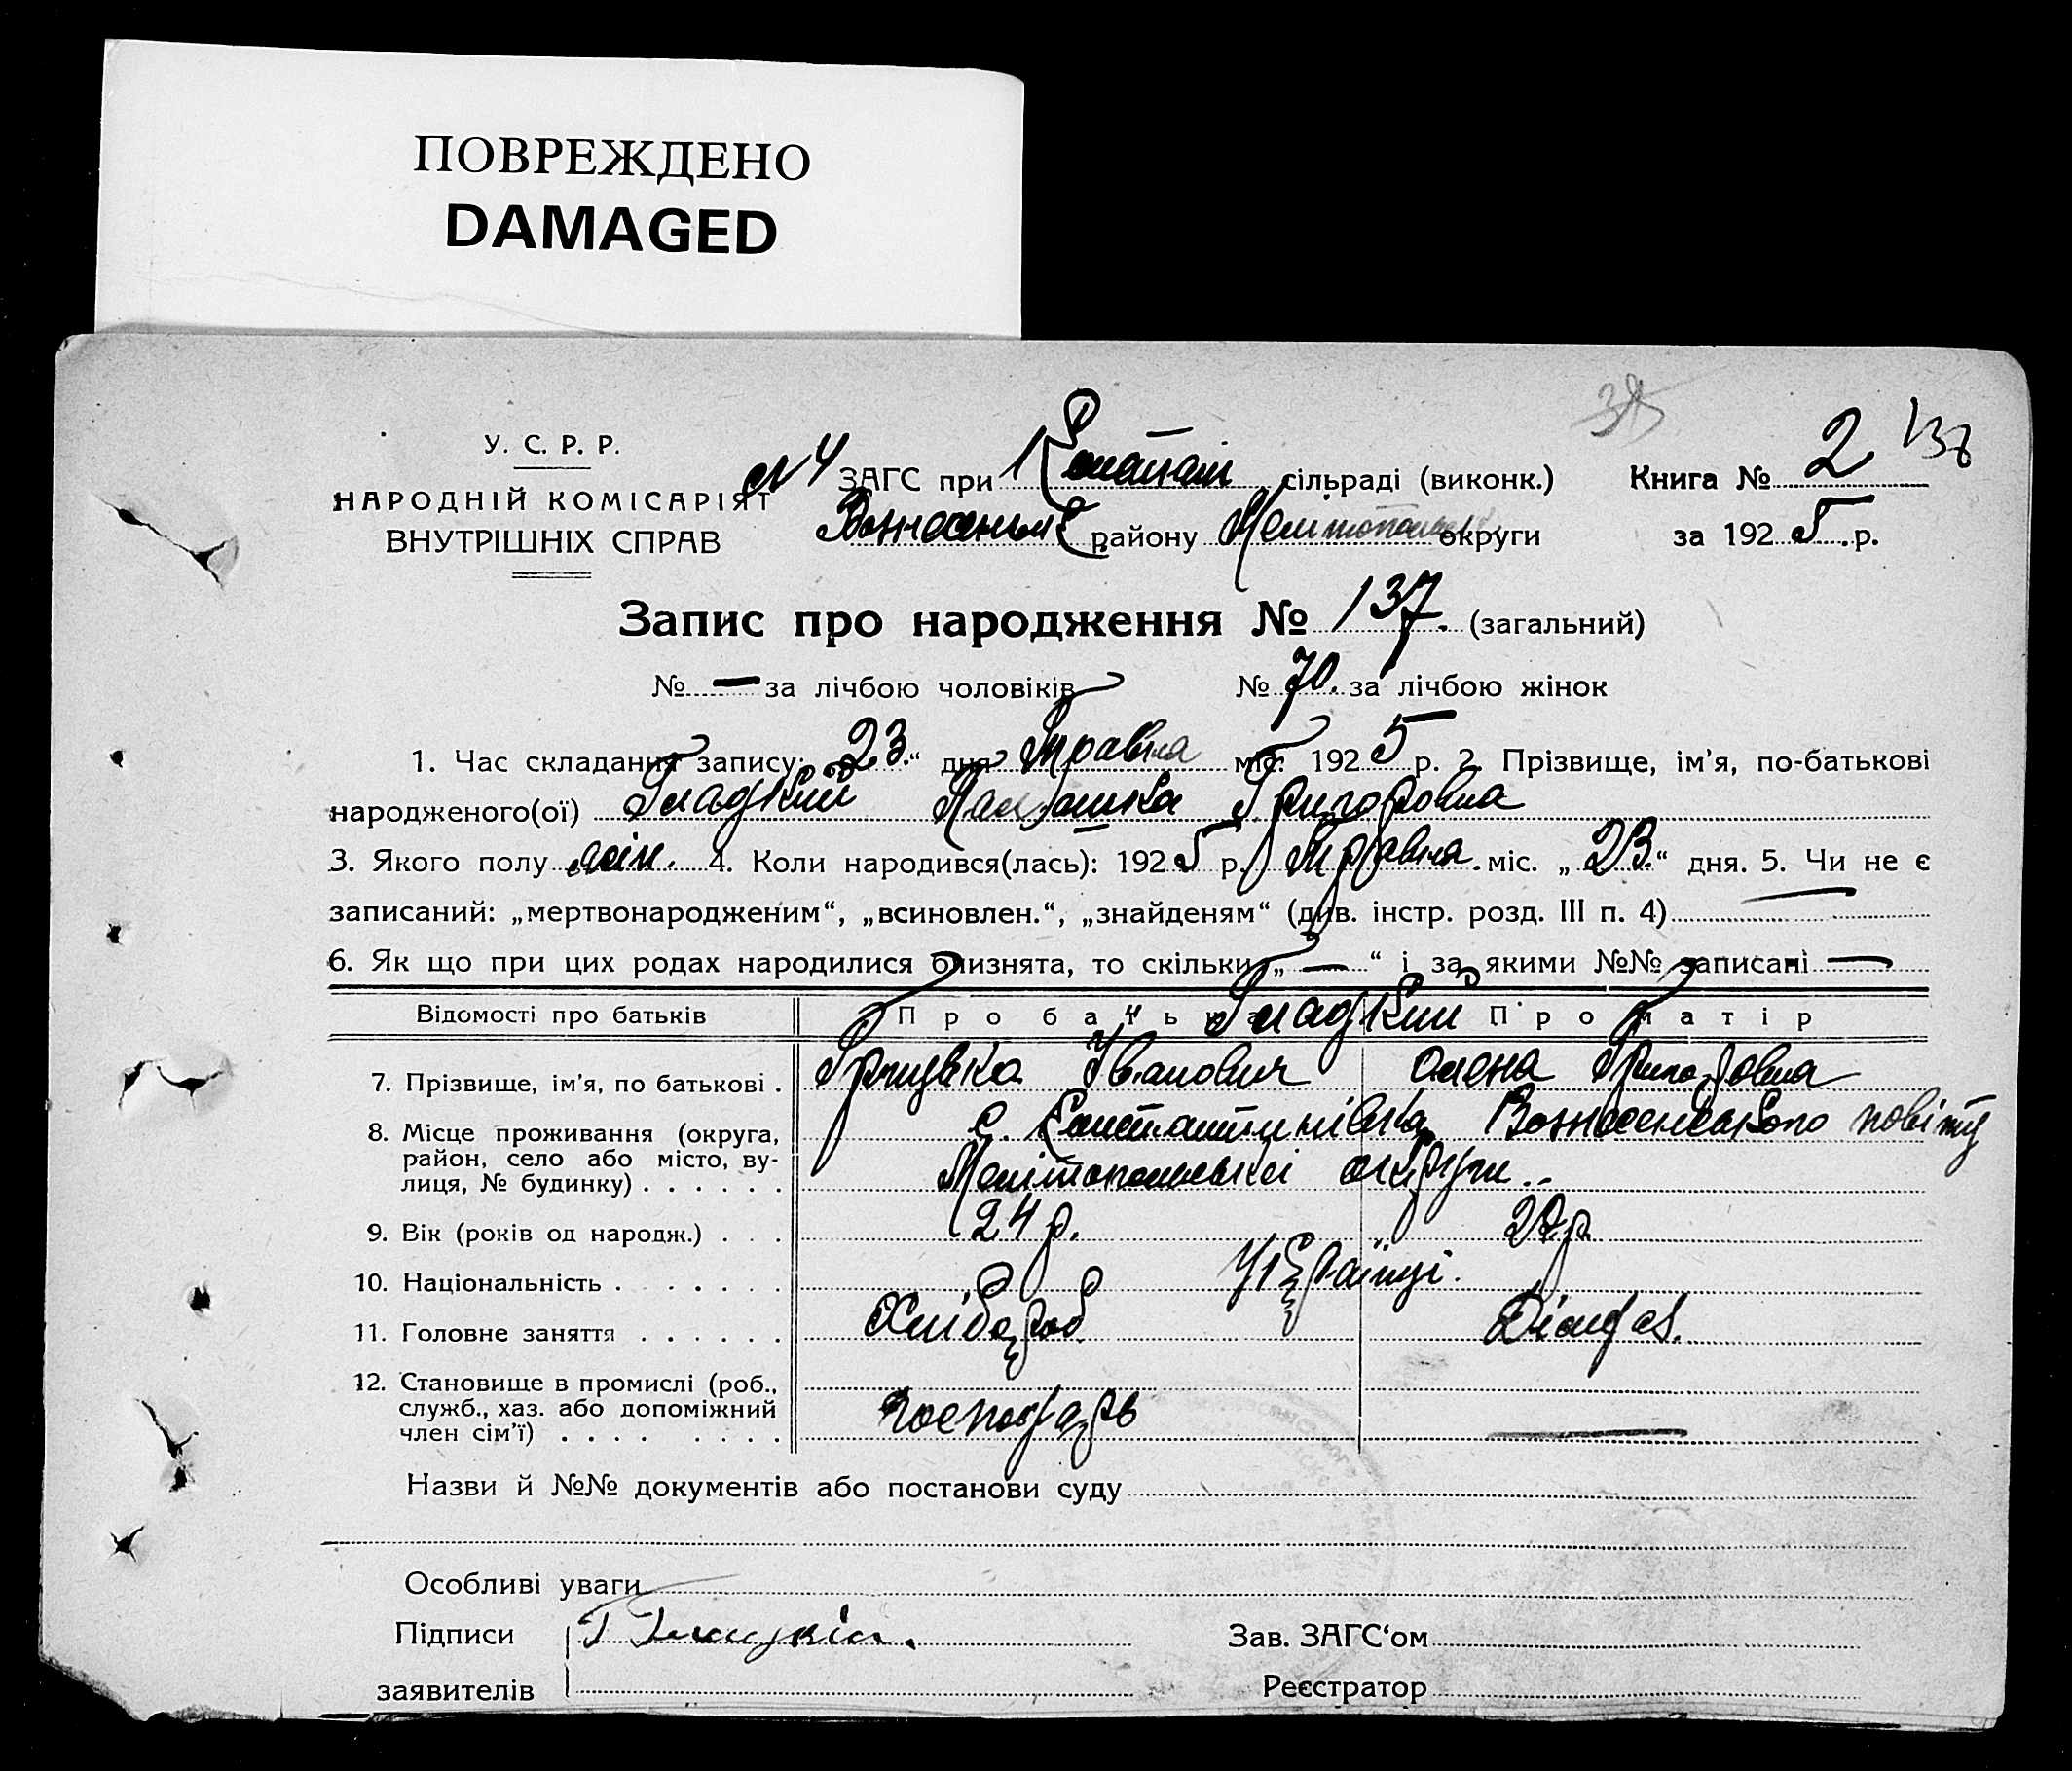 ПОВРЕЖДЕНО
DAMAGED
38
У. С. Р. Р.
НАРОДНІЙ КОМІСАРІЯТ
ВНУТРІШНІХ СПРАВ
№ 4 ЗАГС при 1 сільраді (виконк.) Книга № 2 138
району округи за 1925 р.
Запис про народження № 137. (загальний)
№ — за лічбою чоловіків № 70. за лічбою жінок
1. Час складання запису: „23“ дня Травня міс. 1925 р. 2. Прізвище, ім'я, по-батькові
народженого(ої) Гладкий Григоровна
3. Якого полу жін. 4. Коли народився(лась): 1925 р. Травня міс. „23“ дня. 5. Чи не є
записаний: „мертвонародженим“, „всиновлен.“, „знайденям“ (див. інстр. розд. III п. 4) —
6. Як що при цих родах народилися близнята, то скільки „—“ і за якими №№ записані —
Відомості про батьків Про батька Гладкий Про матір
7. Прізвище, ім'я, по батькові . Грицько Іванович Олена Григоровна
8. Місце проживання (округа, с. Константинівка Вознесенського повіту
район, село або місто, ву-
лиця, № будинку) . . . . . . Мелітопольської округи..
9. Вік (років од народж.) . . . 24 р. р.
10. Національність . . . . . . . Українці.
11. Головне заняття . . . . . . Хлібороб
12. Становище в промислі (роб.,
служб., хаз. або допоміжний господарь —
член сім'ї) . . . . . . . .
Назви й №№ документів або постанови суду
Особливі уваги
Підписи Г Гладкій.
Зав. ЗАГС'ом
заявителів
Реєстратор